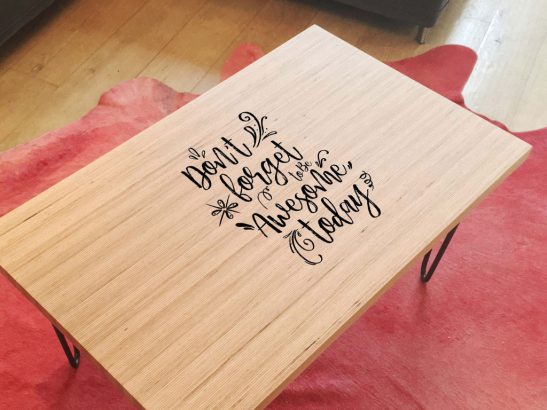 Don't
forget
to Be
Awesome
today